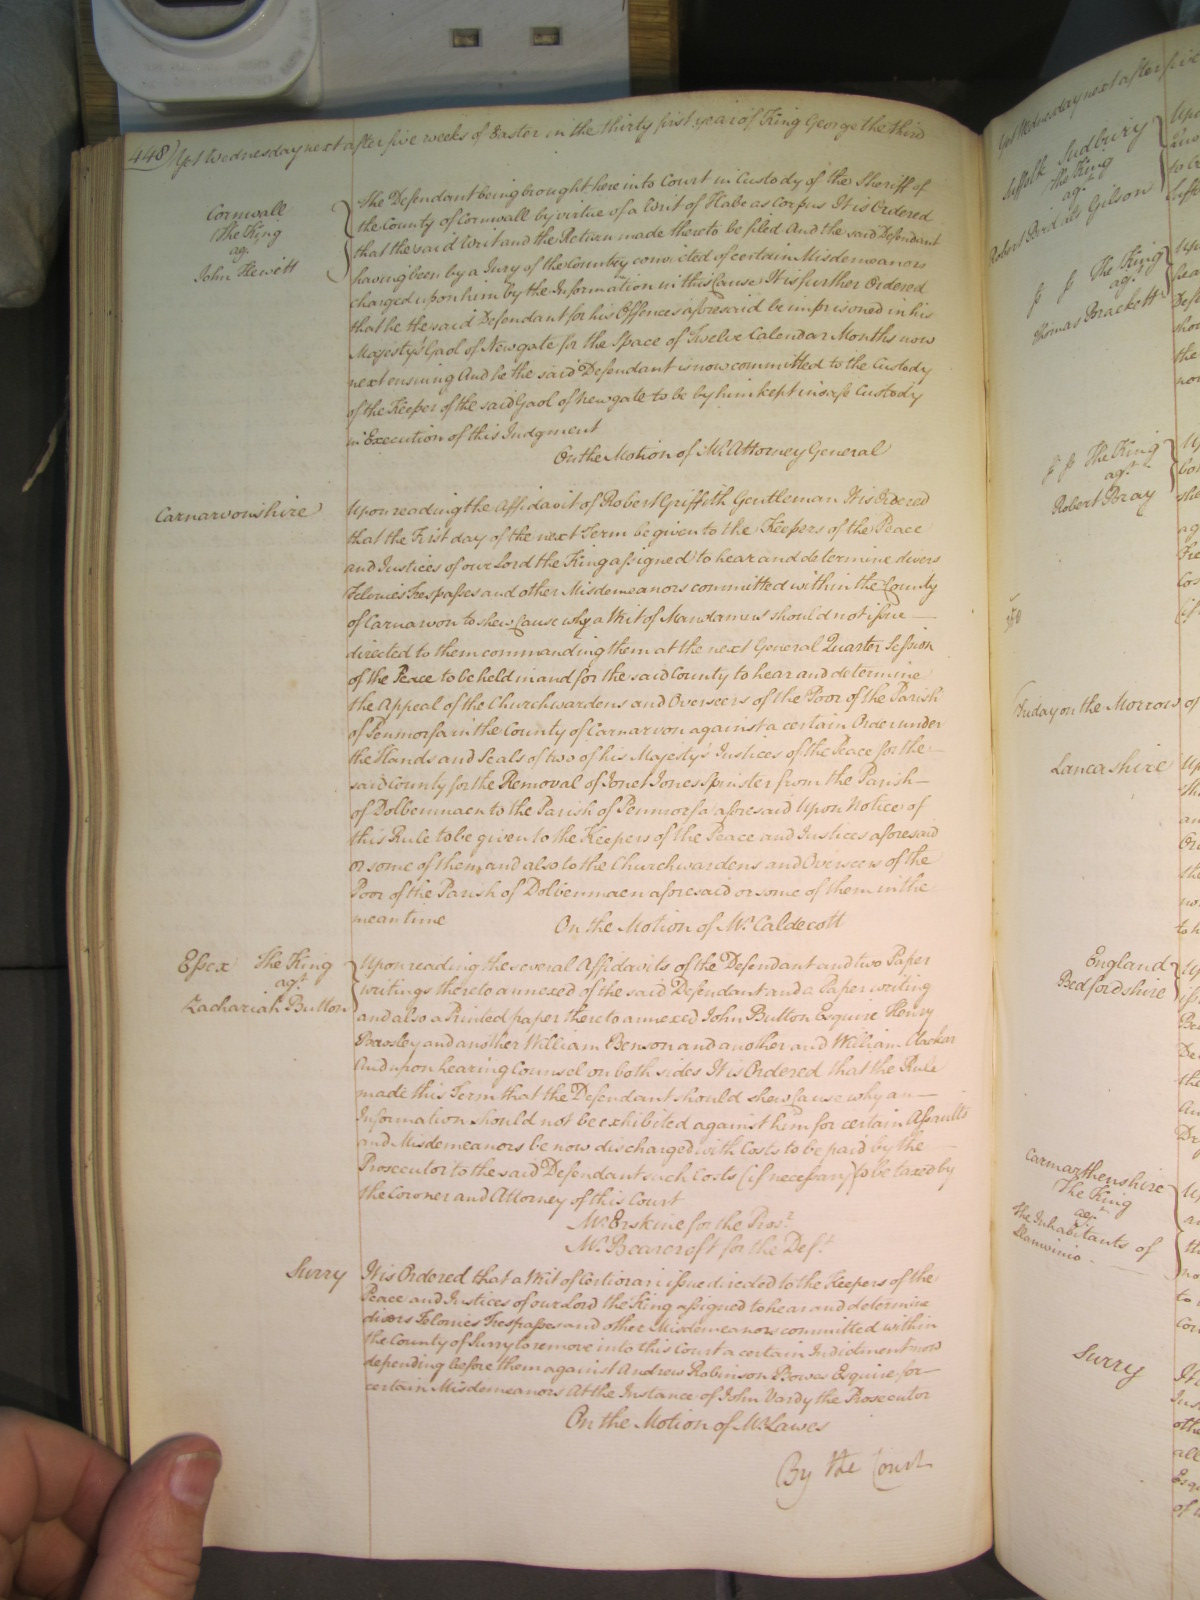 448) Yet Wednesday next after five weeks of Easter in the thirty first year of King George the third
Cornwall
The King
agt
John Hewitt
The Defendant being brought here into Court in Custody of the Sheriff of
the County of Cornwall by virtue of a Writ of Habeas Corpus It is Ordered
that the said Writ and the Return made thereto be filed And the said Defendant
having been by a Jury of the Country convicted of certain Misdemeanors
charged upon him by the Information in this Cause It is further Ordered
that he the said Defendant for his Offences aforesaid be imprisoned in his
Majesty's Gaol of Newgate for the Space of Twelve Calendar Months now
next ensuing And he the said Defendant is now committed to the Custody
of the Keeper of the said Gaol of Newgate to be by him kept in safe Custody
in Execution of this Judgment
On the Motion of Mr. Attorney General
Carnarvonshire
Upon reading the Affidavit of Robert Griffith Gentleman It is Ordered
that the First day of the next Term be given to the Keepers of the Peace
and Justices of our Lord the King assigned to hear and determine divers
Felonies Trespasses and other Misdemeanors committed within the County
of Carnarvon to shew Cause why a Writ of Mandamus should not issue
directed to them commanding them at the next General Quarter Session
of the Peace to be held in and for the said County to hear and determine
the Appeal of the Churchwardens and Overseers of the Poor of the Parish
of Penmorfa in the County of Carnarvon against a certain Order under
the Hands and Seals of two of his Majesty's Justices of the Peace for the
said County for the Removal of Jonet Jones Spinster from the Parish
of Dolbenmaen to the Parish of Penmorfa aforesaid Upon Notice of
this Rule to be given to the Keepers of the Peace and Justices aforesaid
or some of them and also to the Churchwardens and Overseers of the
Poor of the Parish of Dolbenmaen aforesaid or some of them in the
mean time
On the Motion of Mr. Caldecott
Essex The King
agt
Zachariah Button
Upon reading the several Affidavits of the Defendant and two Paper
writings thereto annexed of the said Defendant and a Paper writing
and also a Printed paper thereto annexed John Button Esquire Henry
and another William Benson and another and William
And upon hearing Counsel on both sides It is Ordered that the Rule
made this Term that the Defendant should shew Cause why an
Information should not be exhibited against him for certain Assaults
and Misdemeanors be now discharged with Costs to be paid by the
Prosecutor to the said Defendant such Costs (if necessary) to be taxed by
the Coroner and Attorney of this Court
Mr. Erskine for the Prosr.
Mr. Bearcroft for the Deft.
Surry
It is Ordered that a Writ of Certiorari issue directed to the Keepers of the
Peace and Justices of our Lord the King assigned to hear and determine
divers Felonies Trespasses and other Misdemeanors committed within
the County of Surry to remove into this Court a certain Indictment now
depending before them against Andrew Robinson Bowes Esquire for
certain Misdemeanors At the Instance of John Vardy the Prosecutor
On the Motion of Mr. Lawes
By the Court
Yet Wednesday next after five
Suffolk Sudbury
The King
agt
Gilson
The King
agt
Thomas Brackett
The King
agt
Robert Bray
Friday on the Morrow of
Lancashire
England
Bedfordshire
Carmarthenshire
The King
agt
The Inhabitants of
Llanwinio
Surry